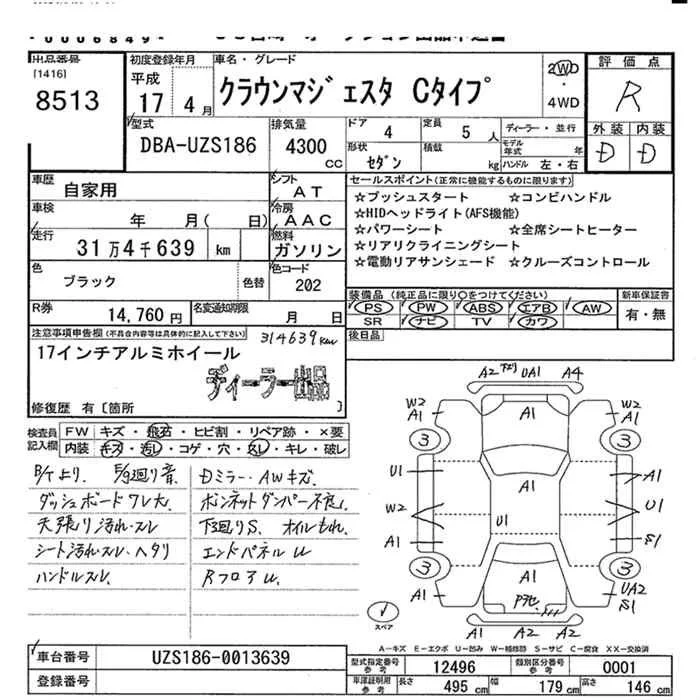 出品番号
[1416]
8513
初度登録年月
平成
17 4月
車名・グレード
クラウンマジェスタ Cタイプ
2WD
・
4WD
評価点
R
外装 内装
D D
型式
DBA-UZS186
排気量
4300
CC
ドア
4
定員
5 人
ディーラー・並行
形状
セダン
積載
kg
モデル年式 年
ハンドル 左・右
車歴
自家用
シフト
AT
車検
年 月( 日)
冷房
AAC
走行
31万4千639 km
燃料
ガソリン
色
ブラック
色替
色コード
202
R券
14,760円
名変通知期限
月 日
セールスポイント(正常に機能するものに限ります)
☆プッシュスタート ☆コンビハンドル
☆HIDヘッドライト(AFS機能)
☆パワーシート ☆全席シートヒーター
☆リアリクライニングシート
☆電動リアサンシェード ☆クルーズコントロール
装備品(純正品に限り○をつけてください)
PS PW ABS エアB AW
SR ナビ TV カワ
新車保証書
有・無
後日品
注意事項申告欄(不具合内容等は具体的に記入して下さい)
314639km
17インチアルミホイール
ディーラー出品
修復歴 有〔箇所 〕
検査員
記入欄
FW キズ・飛石・ヒビ割・リペア跡・×要
内装 キズ・汚レ・コゲ・穴・スレ・キレ・破レ
B/Tより. E/g廻り音.
Dミラー・AWキズ
ダッシュボードワレ大
ボンネットダンパー不良
天張り汚れ・スレ
下廻りS. オイルもれ
シート汚スレ・ヘタリ
エンドパネルU
ハンドルスレ.
RフロアU.
A2 下廻り UA1 A4
W2
A1
A1
W2
A1
3
3
U1
A1
A1
W2
U1
U1
A1
S1
3
3
A1
A1
UA2
S1
Pヲセ
A1 A2 A2
スペア
A-キズ E-エクボ U-凹み W-補修跡 S-サビ C-腐食 XX-交換済
車台番号
UZS186-0013639
登録番号
型式指定番号
参考
12496
類別区分番号
参考
0001
車庫証明用
参考
長さ 495 cm 幅 179 cm 高さ 146 cm